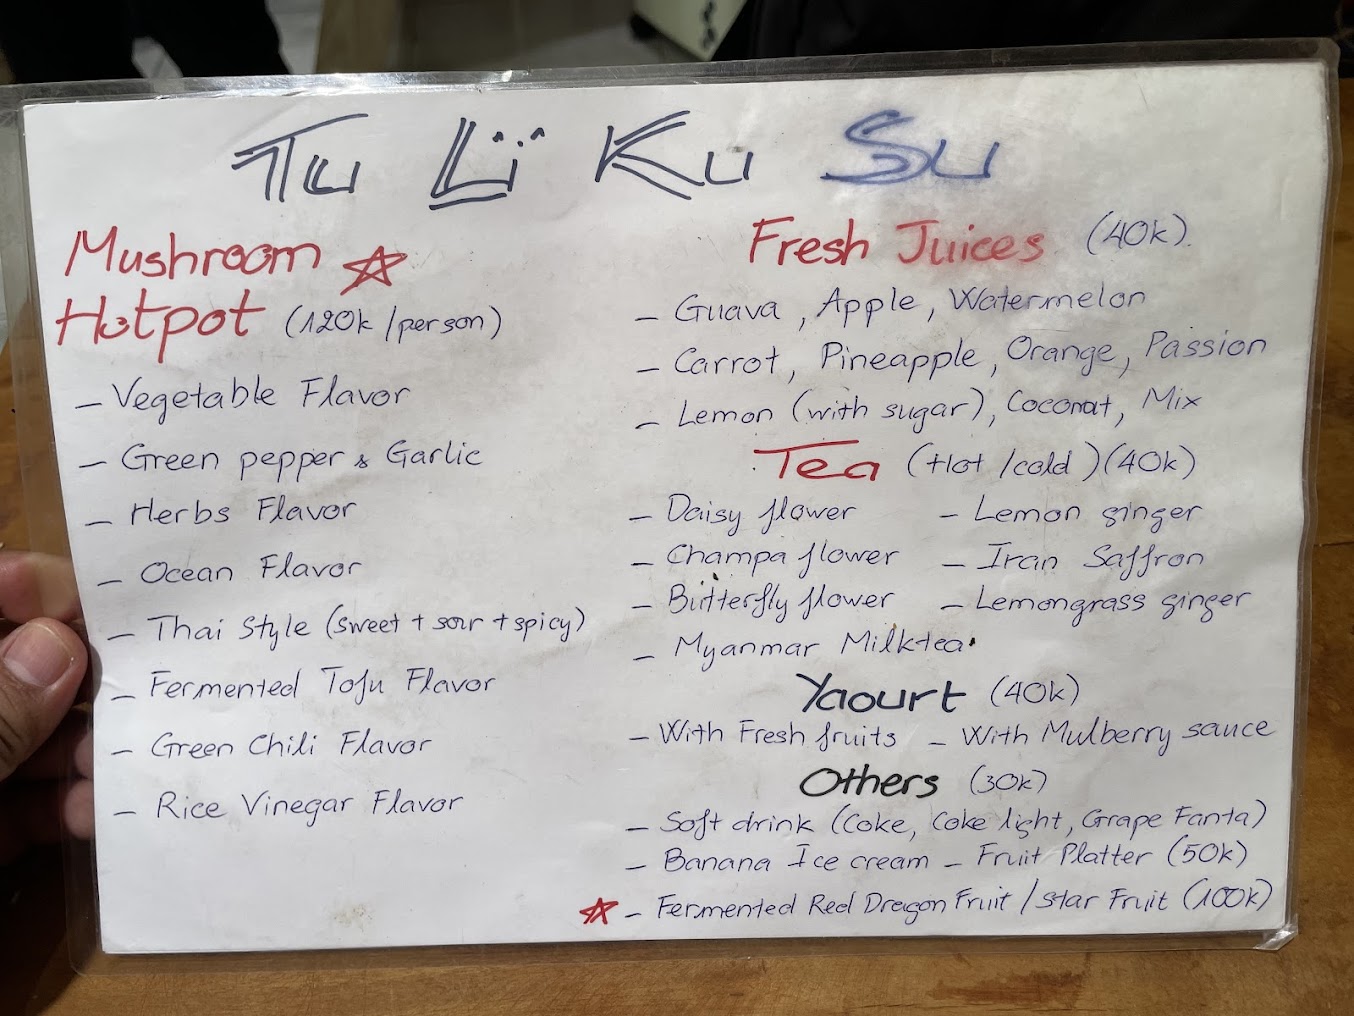 Tu Li Ku Su
Mushroom
Hotpot (120k/person)
- Vegetable Flavor
- Green pepper & Garlic
- Herbs Flavor
- Ocean Flavor
- Thai Style (sweet + sour + spicy)
- Fermented Tofu Flavor
- Green Chili Flavor
- Rice Vinegar Flavor
Fresh Juices (40k).
- Guava, Apple, Watermelon
- Carrot, Pineapple, Orange, Passion
- Lemon (with sugar), Coconat, Mix
Tea (Hot /cold)(40k)
- Daisy flower - Lemon ginger
- Champa flower - Iran Saffron
- Butterfly flower - Lemongrass ginger
- Myanmar Milktea.
Yaourt (40k)
- With Fresh fruits - With Mulberry sauce
Others (30k)
- Soft drink (Coke, Coke light, Grape Fanta)
- Banana Ice cream - Fruit Platter (50k)
- Fermented Red Dragon Fruit / Star Fruit (100k)